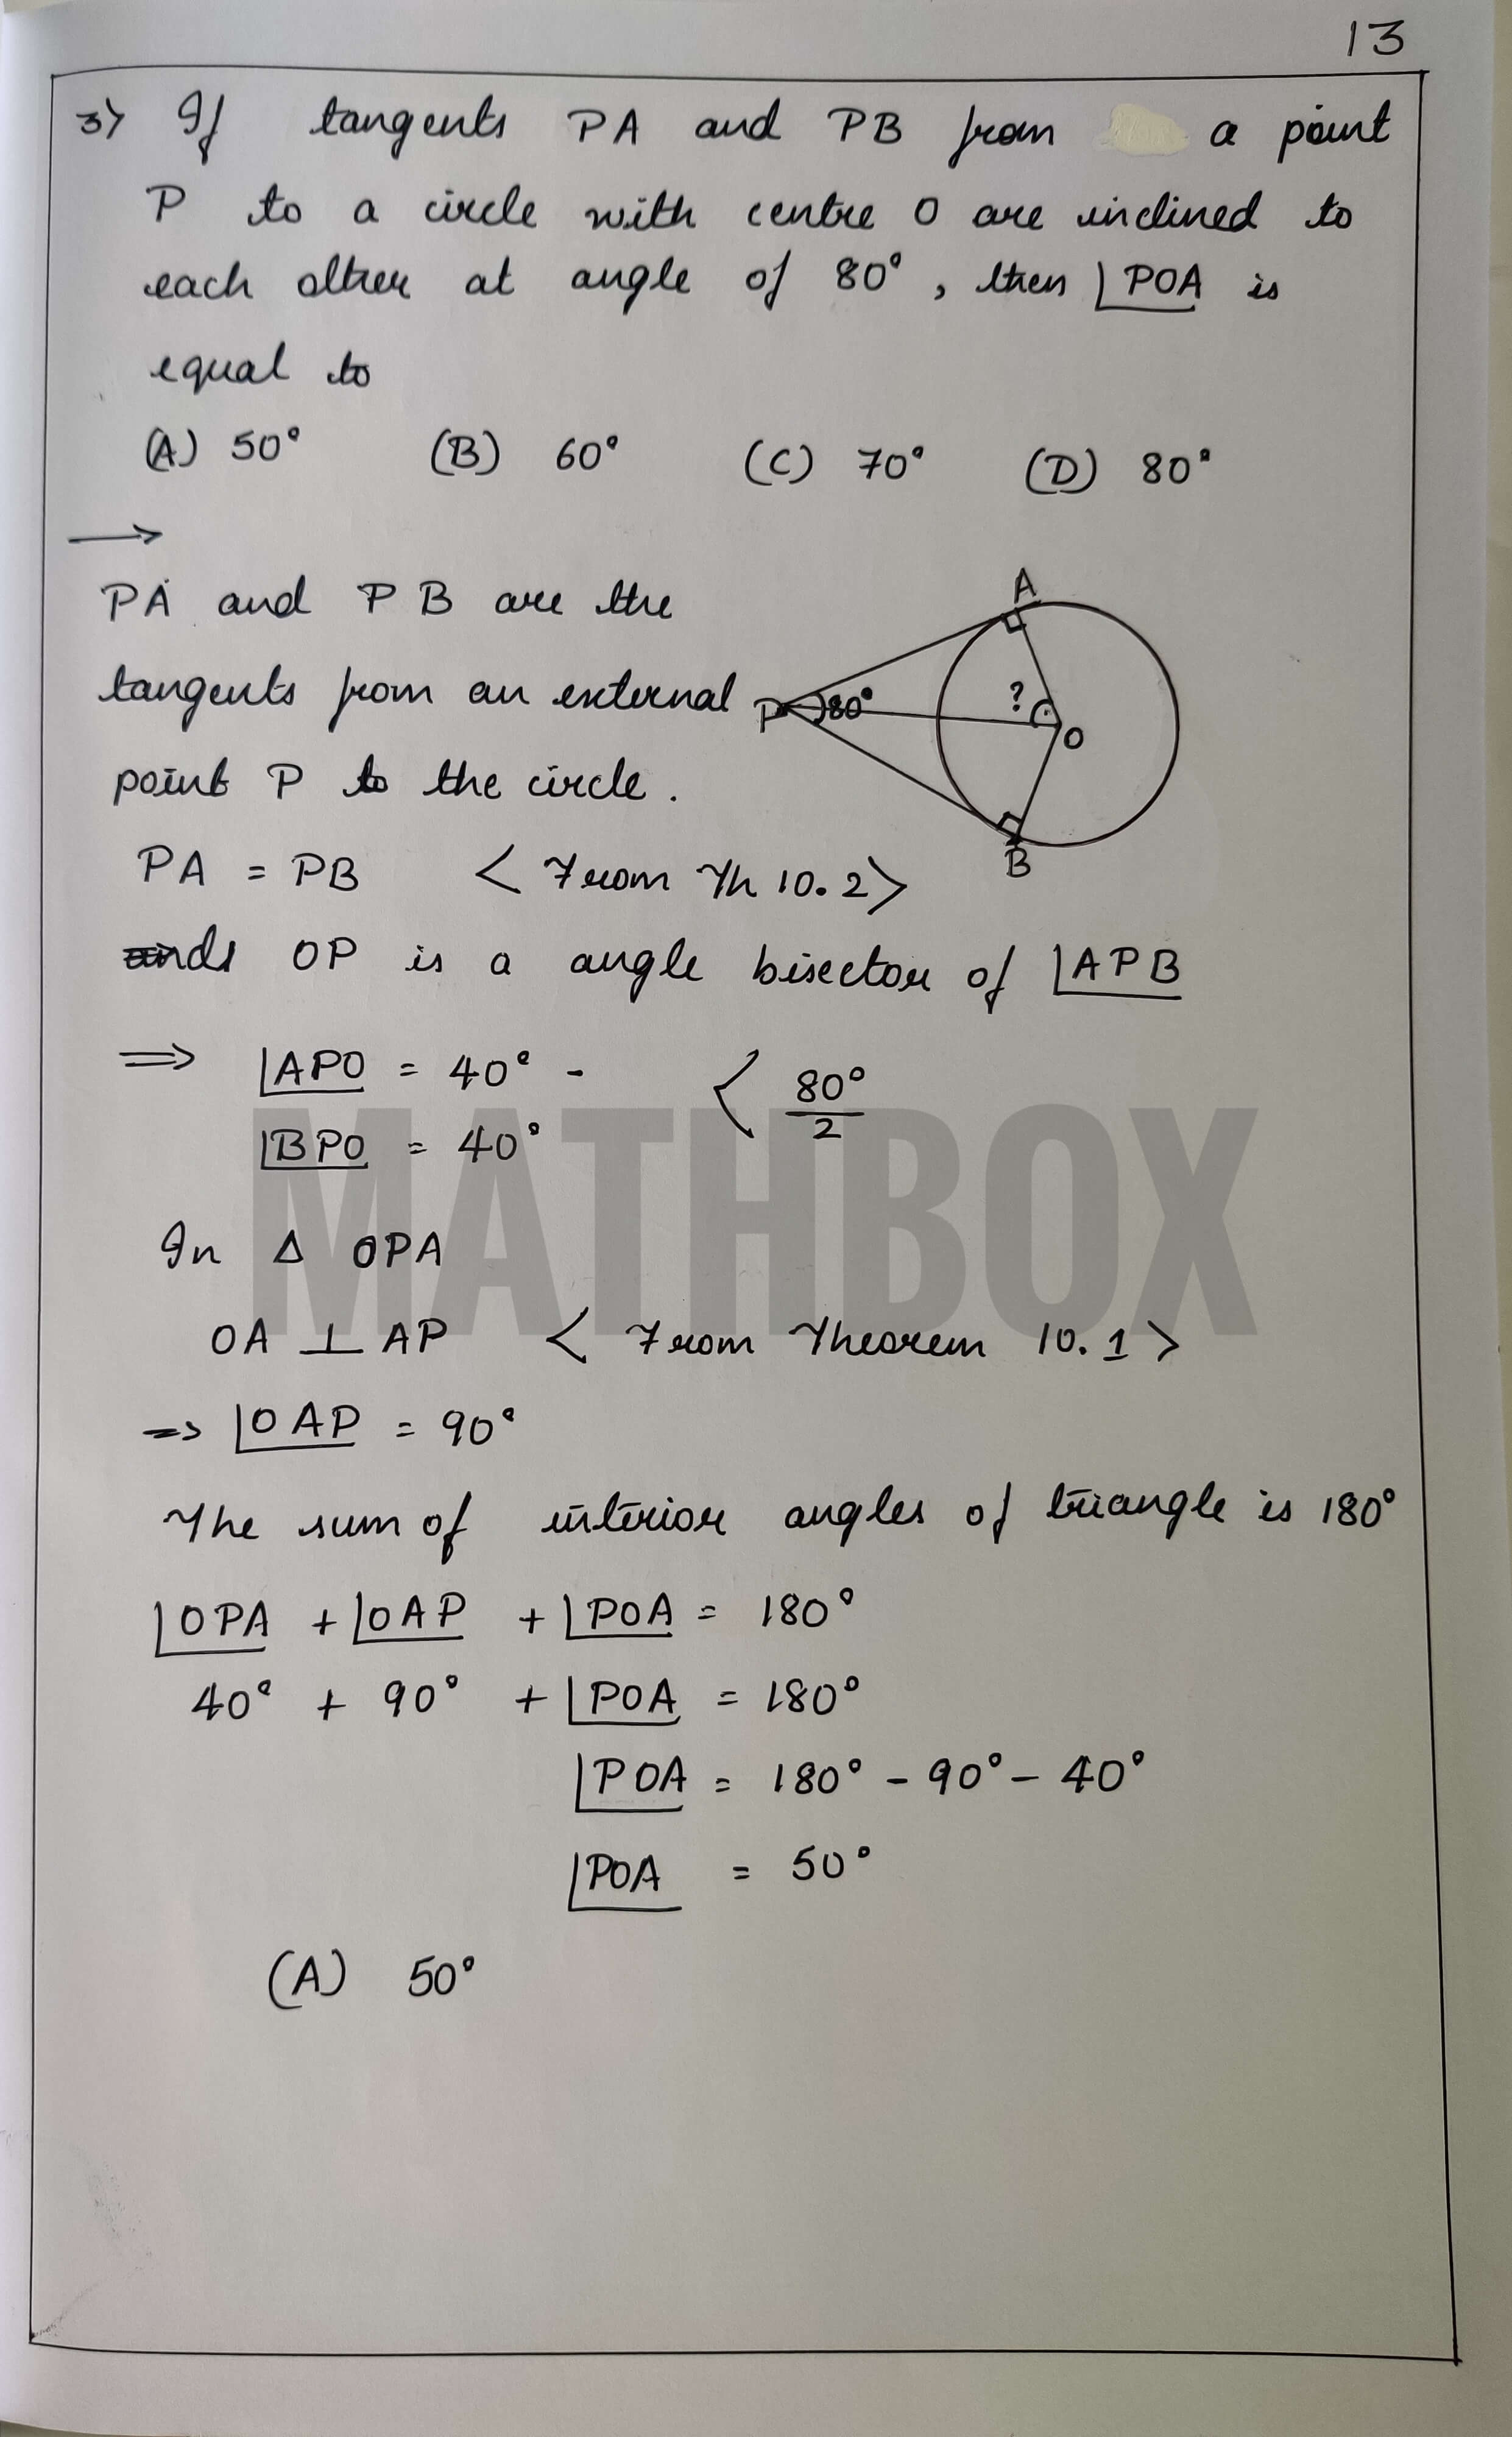 13
3) If tangents PA and PB from a point
P to a circle with centre O are inclined to
each other at angle of 80°, then ∠POA is
equal to
(A) 50° (B) 60° (C) 70° (D) 80°
→
PA and PB are the
tangents from an external
point P to the circle.
A
P
80°
?
O
B
PA = PB < From Th 10.2>
and OP is a angle bisector of ∠APB
⇒ ∠APO = 40° - < 80°/2
∠BPO = 40°
MATHBOX
In Δ OPA
OA ⊥ AP < From Theorem 10.1>
⇒ ∠OAP = 90°
The sum of interior angles of triangle is 180°
∠OPA + ∠OAP + ∠POA = 180°
40° + 90° + ∠POA = 180°
∠POA = 180° - 90° - 40°
∠POA = 50°
(A) 50°